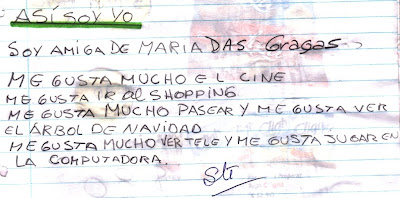 ASÍ SOY YO
SOY AMIGA DE MARIA DAS Graças
ME GUSTA MUCHO EL CINE
ME GUSTA IR al SHOPPING
ME GUSTA MUCHO PASEAR Y ME GUSTA VER
EL ÁRBOL DE NAVIDAD
ME GUSTA MUCHO VER TELE Y ME GUSTA JUGAR EN
LA COMPUTADORA.